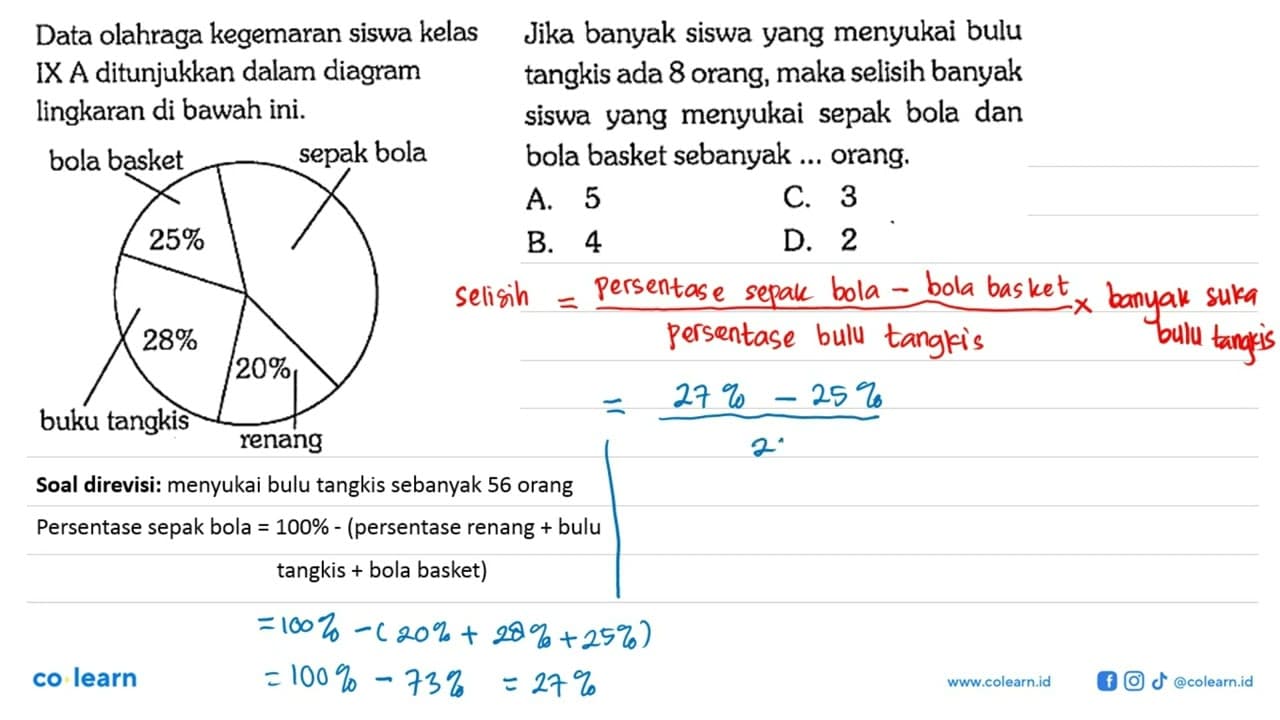 Data olahraga kegemaran siswa kelas
IX A ditunjukkan dalam diagram
lingkaran di bawah ini.
bola basket
sepak bola
25%
28%
20%
buku tangkis
renang
Jika banyak siswa yang menyukai bulu
tangkis ada 8 orang, maka selisih banyak
siswa yang menyukai sepak bola dan
bola basket sebanyak ... orang.
A. 5 C. 3
B. 4 D. 2
selisih = persentase sepak bola - bola basket x banyak suka
persentase bulu tangkis bulu tangkis
= 27% - 25%
2
Soal direvisi: menyukai bulu tangkis sebanyak 56 orang
Persentase sepak bola = 100% - (persentase renang + bulu
tangkis + bola basket)
= 100% - (20% + 28% + 25%)
= 100% - 73% = 27%
co learn
www.colearn.id
@colearn.id